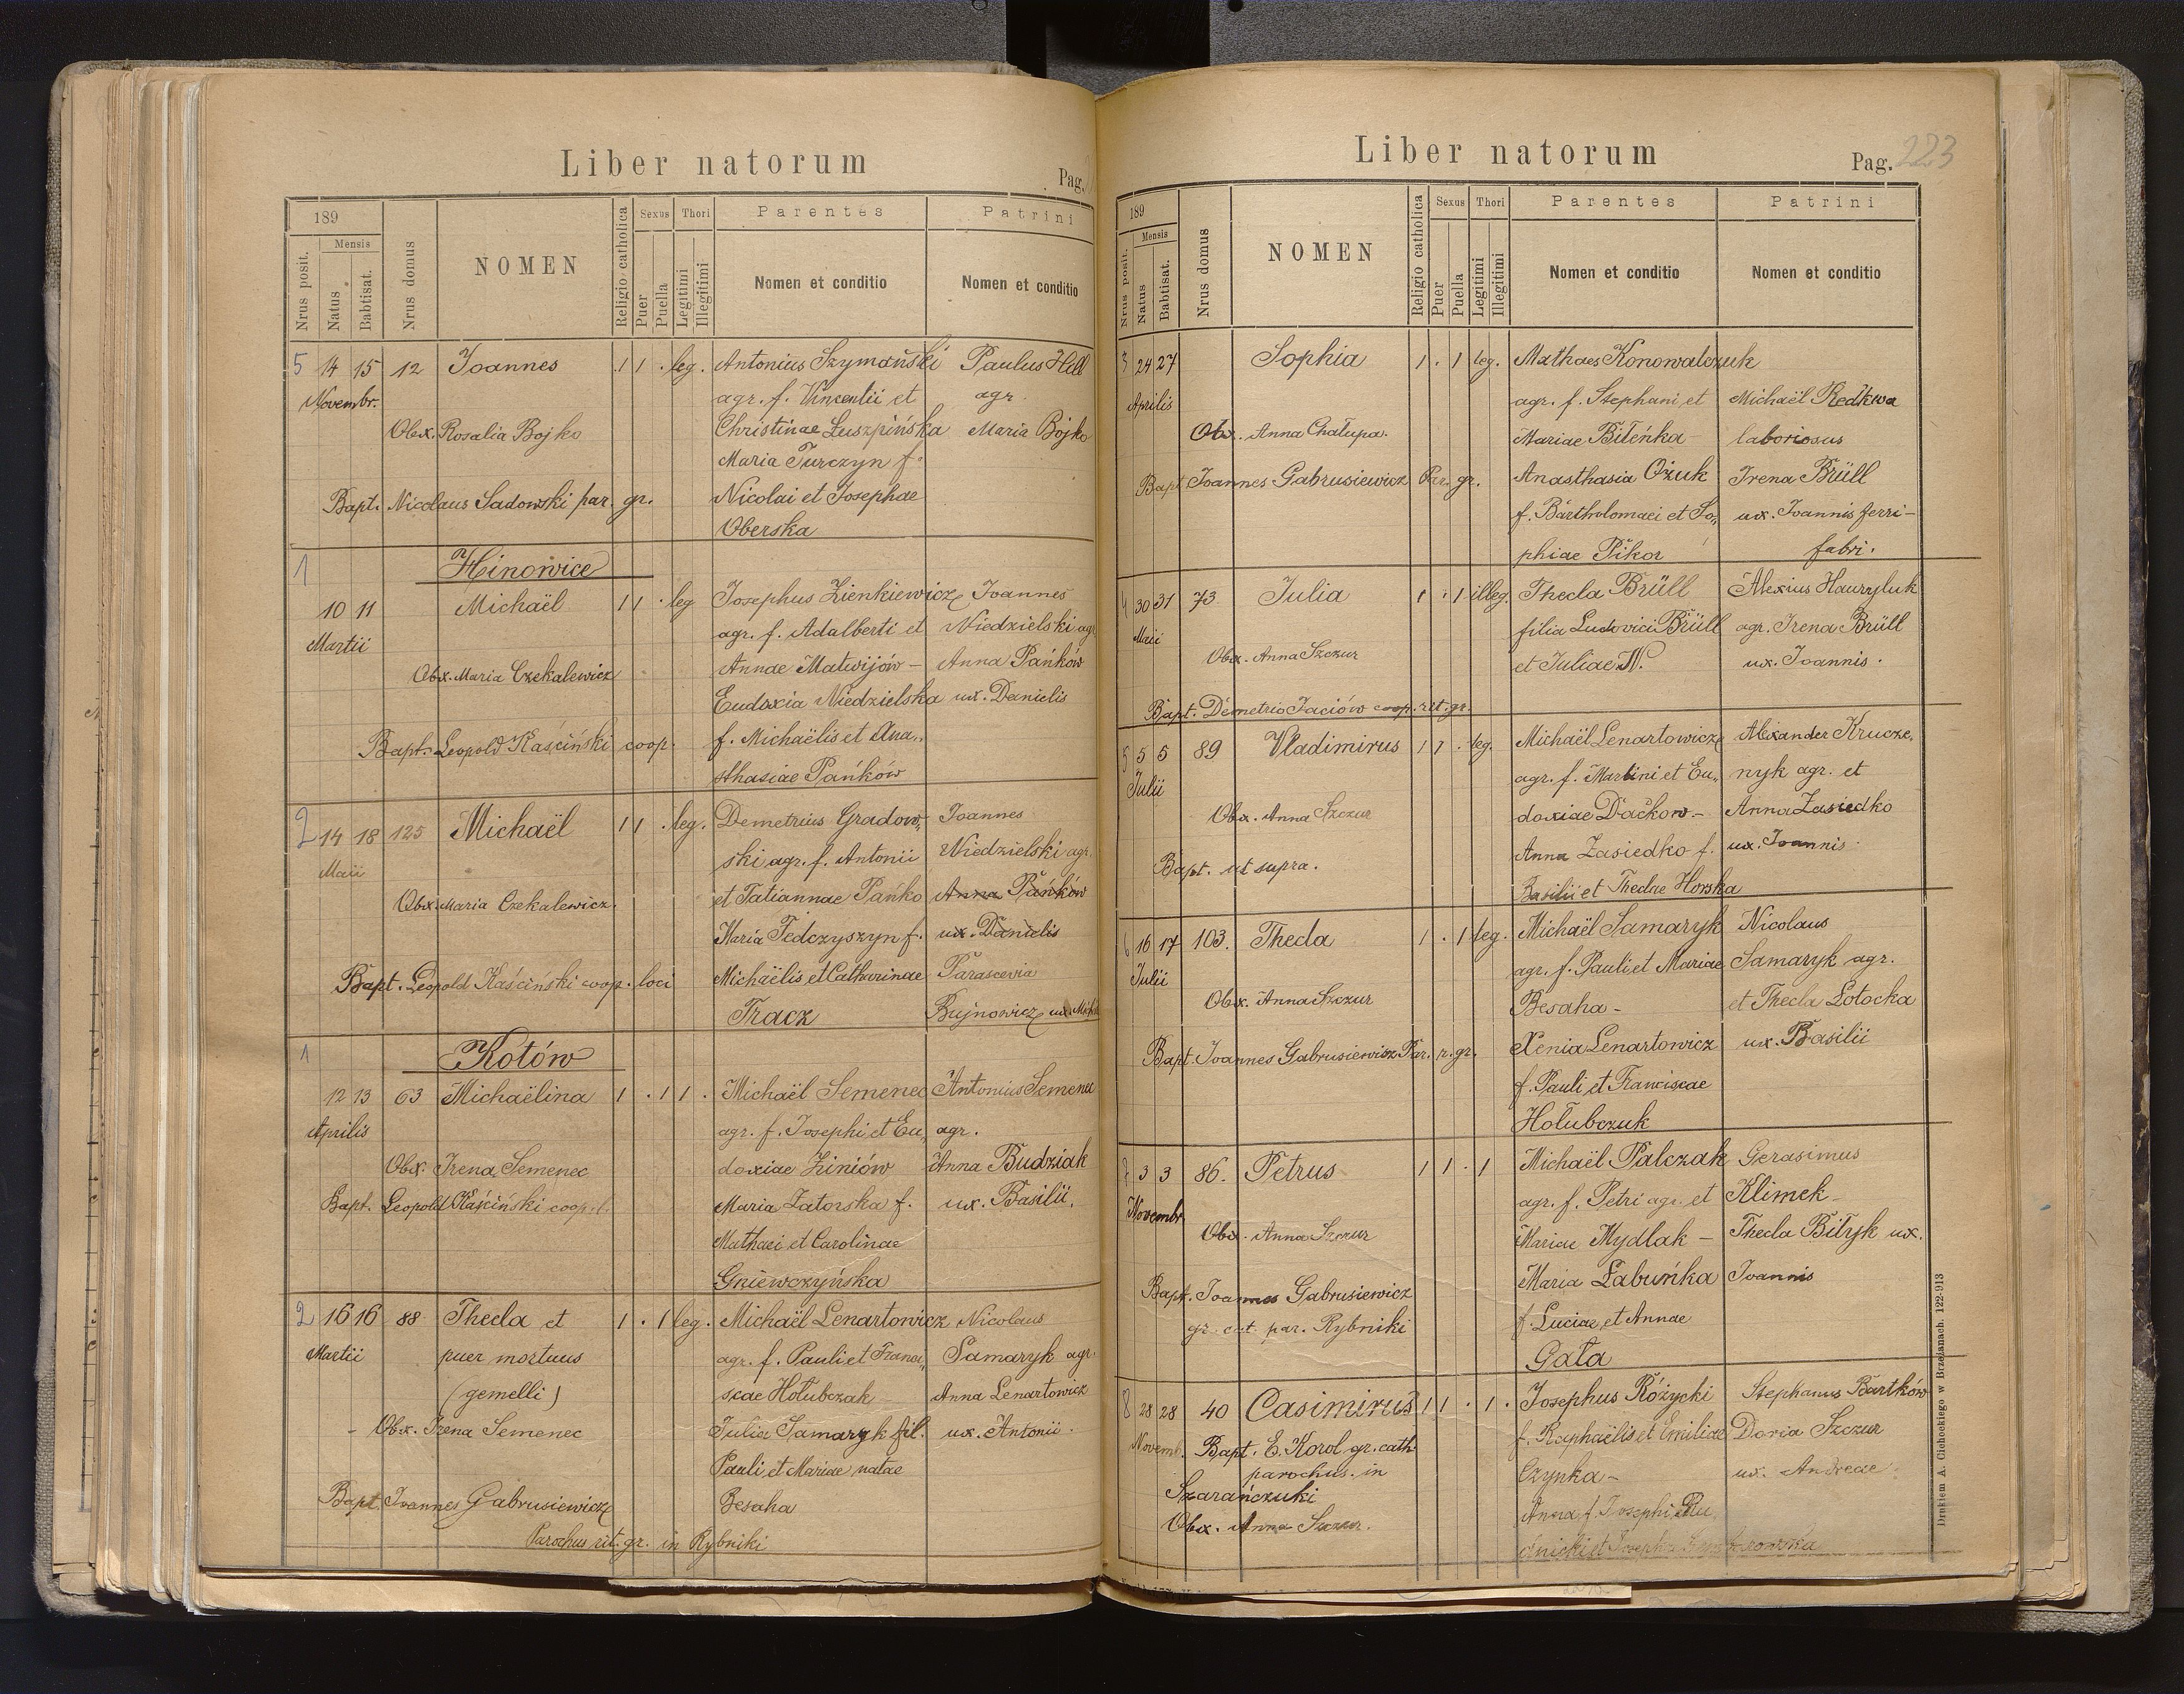 Liber natorum
Pag.
189
Mensis
Nrus posit.
Natus
Babtisat.
Nrus domus
NOMEN
Religio catholica
Sexus
Puer
Puella
Thori
Legitimi
Illegitimi
Parentes
Nomen et conditio
Patrini
Nomen et conditio
5 14 15 12 Joannes 1 1 . leg. Antonius Szymański Paulus Hell
Novembr. agr. f. Vincentii et agr.
Obx. Rosalia Bojko Christinae Łuszpińska Maria Bojko
Maria Turczyn f.
Bapt. Nicolaus Sadowski par. gr. Nicolai et Josephae
Oberska
1 Hinowice
10 11 Michaël 1 1 . leg Josephus Zienkiewicz Joannes
Martii agr. f. Adalberti et Niedzielski agr
Obx. Maria Czekalewicz Annae Matwijów - Anna Pańków
Eudoxia Niedzielska ux. Danielis
Bapt. Leopold Kaściński coop. f. Michaëlis et Ana„
sthasiae Pańków
2 14 18 125 Michaël 1 1 . leg. Demetrius Gradow„ Joannes
Maii ski agr. f. Antonii Niedzielski agr.
Obx. Maria Czekalewicz. et Tatiannae Pańko Anna Pańków
Maria Fedczyszyn f. ux. Danielis
Bapt. Leopold Kaściński coop. loci Michaëlis et Catharinae Parascevia
Tracz Bujnowicz ux. Mich
1 Kotów
12 13 63 Michaëlina 1 . 1 1 . Michaël Semenec Antonius Semenec
Aprilis agr. f. Josephi et Eu„ agr.
Obx. Irena Semenec doxiae Ziniów Anna Budziak
Bapt. Leopold Kaściński coop. l. Maria Zatorska f. ux. Basilii.
Mathaei et Carolinae
Gniewczyńska
2 16 16 88 Thecla et 1 . 1 leg. Michaël Lenartowicz Nicolaus
Martii puer mortuus agr. f. Pauli et Franci„ Samaryk agr.
(gemelli) scae Hołubczak - Anna Lenartowicz
- Obx. Irena Semenec Julia Samaryk fil. ux. Antonii.
Pauli et Mariae natae
Bapt. Joannes Gabrusiewicz Besaha
Parochus rit. gr. in Rybniki
Liber natorum
Pag. 223
189
Mensis
Nrus posit.
Natus
Babtisat.
Nrus domus
NOMEN
Religio catholica
Sexus
Puer
Puella
Thori
Legitimi
Illegitimi
Parentes
Nomen et conditio
Patrini
Nomen et conditio
3 24 27 Sophia 1 . 1 leg. Mathaes Konowalczuk
Aprilis agr. f. Stephani et Michaël Redkwa
Obx. Anna Chałupa. Mariae Biłeńka - laboriosus
Bapt Joannes Gabrusiewicz Par. gr. Anasthasia Ożuk Irena Brüll
f. Bartholomaei et So„ ux. Joannis ferri-
phiae Pikor fabri.
4 30 31 73 Julia 1 . 1 illeg. Thecla Brüll Alexius Hawryluk
Maii filia Ludovici Brüll agr. Irena Brüll
Obx. Anna Szczur et Juliae N. ux. Joannis.
Bapt. Demetrio Jaciów coop. rit. gr.
5 5 5 89 Vladimirus 1 1 . leg. Michaël Lenartowicz Alexander Krucze„
Julii agr. f. Martini et Eu„ nyk agr. et
Obx. Anna Szczur doxiae Daćkow.- Anna Zasiedko
Anna Zasiedko f. ux. Joannis.
Bapt. ut supra. Basilii et Theclae Horska
6 16 17 103. Thecla 1 . 1 leg. Michaël Samaryk Nicolaus
Julii agr. f. Pauli et Mariae Samaryk agr.
Obx. Anna Szczur Besaha - et Thecla Łotocka
Bapt. Joannes Gabrusiewicz Par. r. gr. Xenia Lenartowicz ux. Basilii
f. Pauli et Franciscae
Hołubczuk
7 3 3 86. Petrus 1 1 . 1 Michaël Palczak Gerasimus
Novembr agr. f. Petri agr. et Klimek -
Obx. Anna Szczur Mariae Mydlak - Thecla Biłyk ux.
Bapt. Joannes Gabrusiewicz Maria Łabuńka Joannis
gr. cat. par. Rybniki f. Luciae et Annae
Gała
8 28 28 40 Casimirus 1 1 . 1 . Josephus Różycki Stephanus Bartków
Novemb. Bapt. E. Korol gr. cath f. Raphaëlis et Emiliae Daria Szczur
parochus. in Czynka - ux. Andreae
Szarańczuki Anna f. Josephi Ru„
Obx. Anna Szczur. dnicki et Josepha
Drukiem A. Cichockiego w Brzeżanach. 122-913